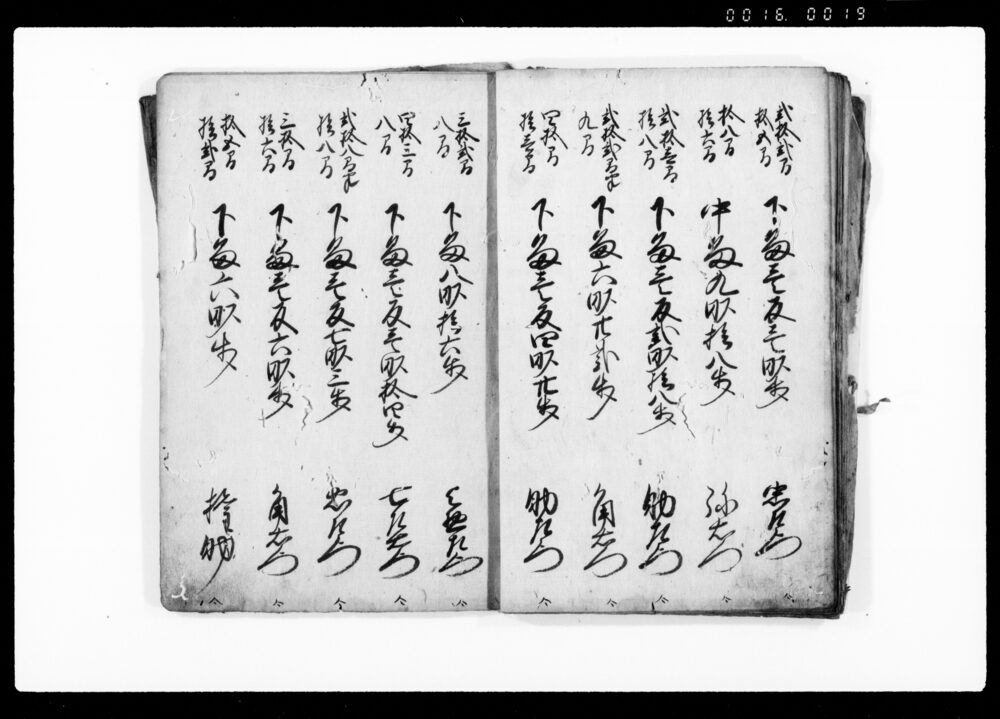 0016. 0019
弐拾弐間
拾五間
下畠壱反壱畝歩 忠左衛門
拾八間
拾六間
中畠九畝拾八歩 弥右衛門
弐拾壱間
拾八間
下畠壱反弐畝拾八歩 助左衛門
弐拾弐間半
九間
下畠六畝廿弐歩 角右衛門
四拾間
拾壱間
下畠壱反四畝廿歩 助左衛門
三拾弐間
八間
下畠八畝拾六歩
四拾三間
八間
下畠壱反壱畝拾四歩
弐拾八間半
拾八間
下畠壱反七畝三歩 忠左衛門
三拾間
拾六間
下畠壱反六畝歩 角右衛門
拾五間
拾弐間
下畠六畝歩